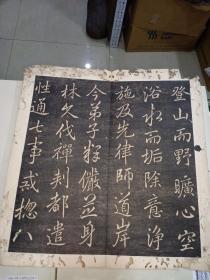 登山而野曠心空
浴水而垢除意淨
施及先律師道岸
今弟子釋儼並身
林久伐禪判都遣
性通七事戒惣八